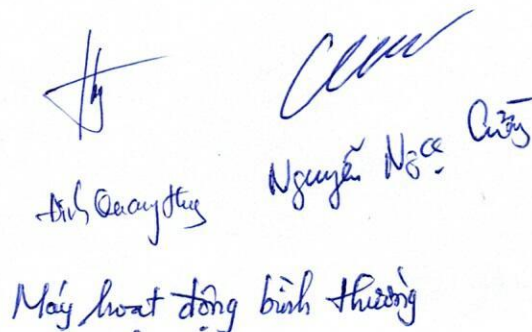 Đinh Quang Huy
Nguyễn Ngọc Cường
Máy hoạt động bình thường